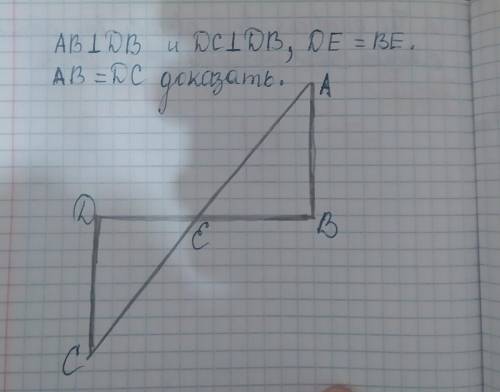 AB⊥DB и DC⊥DB, DE = BE.
AB = DC доказать.
A
D
E
B
C